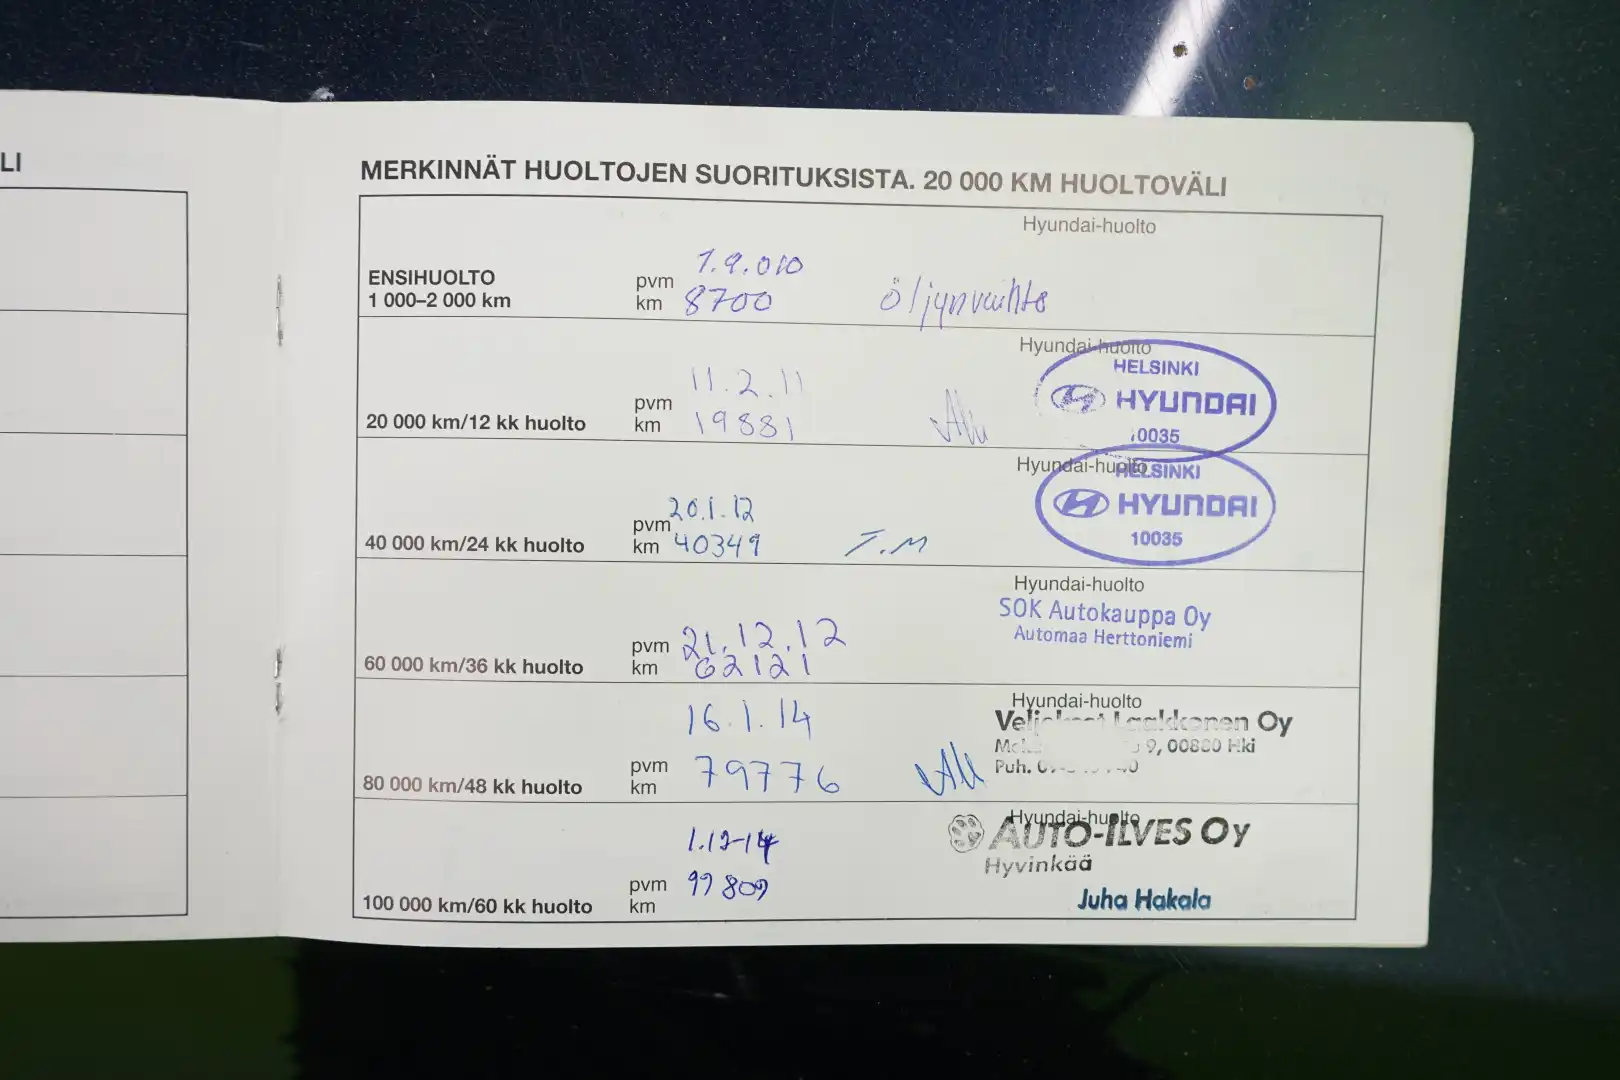 LI
MERKINNÄT HUOLTOJEN SUORITUKSISTA. 20 000 KM HUOLTOVÄLI
Hyundai-huolto
ENSIHUOLTO
1 000–2 000 km
pvm 1.9.010
km 8700
öljynvaihto
Hyundai-huolto
20 000 km/12 kk huolto
pvm 11.2.11
km 19881
HELSINKI
HYUNDAI
10035
Hyundai-huolto
40 000 km/24 kk huolto
pvm 20.1.12
km 40349
T.M
HELSINKI
HYUNDAI
10035
Hyundai-huolto
60 000 km/36 kk huolto
pvm 21.12.12
km 62121
SOK Autokauppa Oy
Automaa Herttoniemi
Hyundai-huolto
80 000 km/48 kk huolto
pvm 16.1.14
km 79776
Laakkonen Oy
9, 00880 Hki
Puh.
Hyundai-huolto
100 000 km/60 kk huolto
pvm 1.12-14
km 99809
AUTO-ILVES Oy
Hyvinkää
Juha Hakala